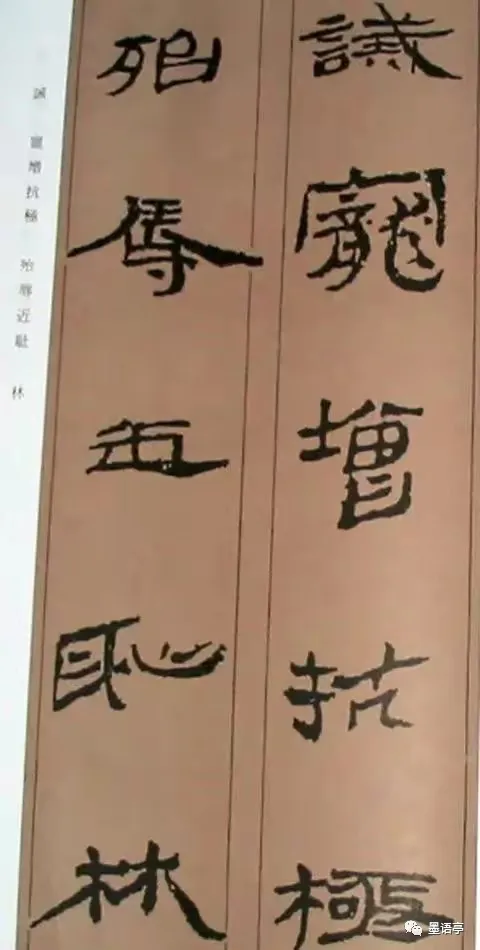 誡寵增抗極
殆辱近恥林
誡　寵增抗極　殆辱近耻　林
墨语亭